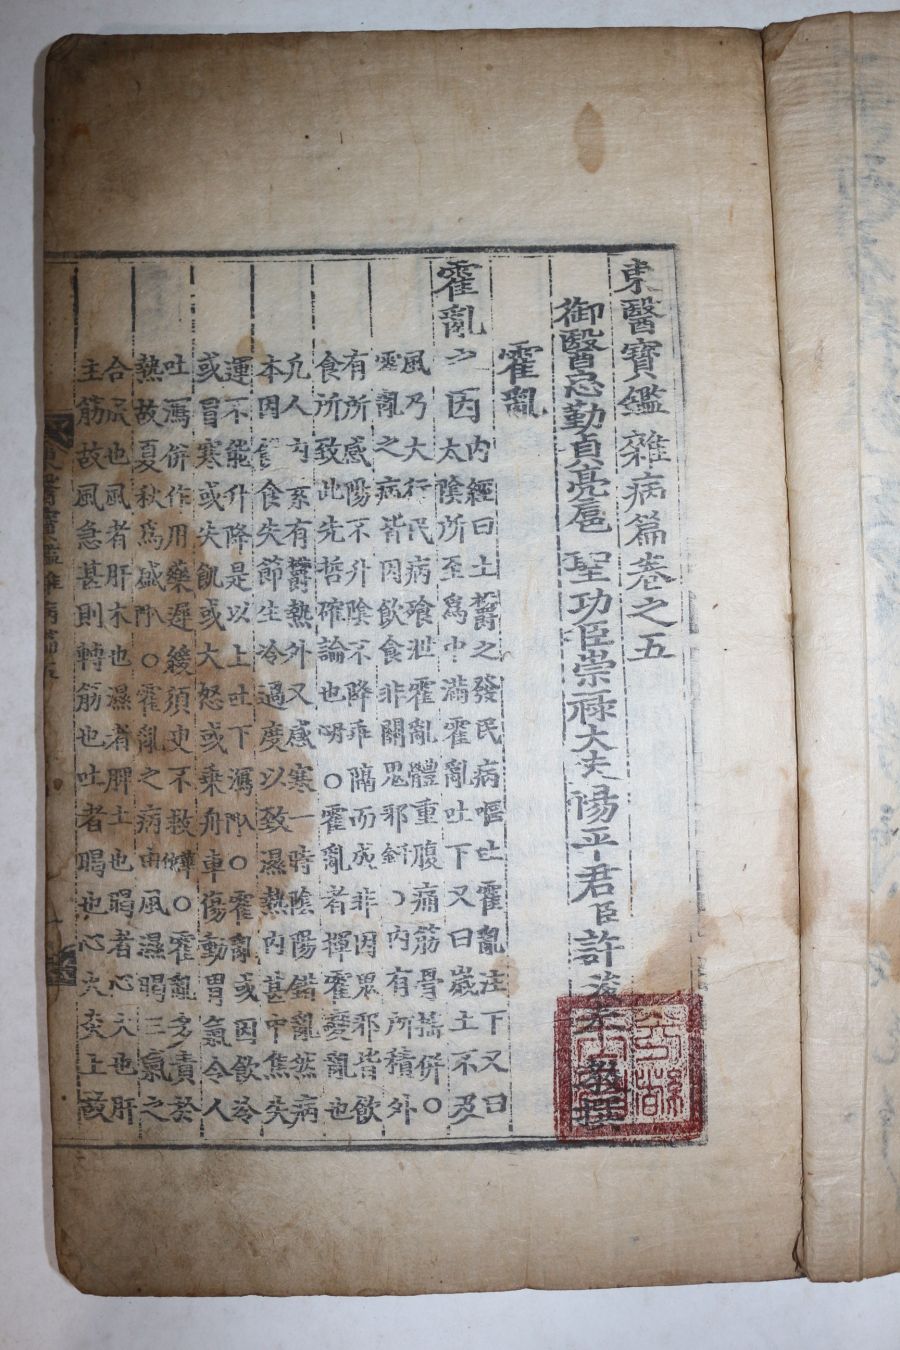 東醫寶鑑雜病篇卷之五
御醫忠勤貞亮扈聖功臣崇祿大夫陽平君臣許浚奉教撰
霍亂
霍亂之因
內經曰土鬱之發民病嘔吐霍亂注下又曰
太陰所至爲中滿霍亂吐下又曰歲土不及
風乃大行民病飱泄霍亂體重腹痛筋骨搖併○
霍亂之病皆因飲食非關鬼邪 ○內有所積外
有所感陽不升陰不降乖隔而成非因眾邪皆飲
食所致此先哲確論也 ○霍亂者揮霍變亂也
凡人內系有鬱熱外又感寒一時陰陽錯亂然病
本因食失節生冷過度以致濕熱內甚中焦失
運不能升降是以上吐下瀉 ○霍亂或因飲冷
或冒寒或失飢或大怒或乘舟車傷動胃氣令人
吐瀉併作用藥遲緩須臾不救 ○霍亂多責於
熱故夏秋爲盛 ○霍亂之病由風濕暍三氣之
合成也風者肝木也濕者脾土也暍者心火也肝
主筋故風急甚則轉筋也吐者暍也心火炎上故